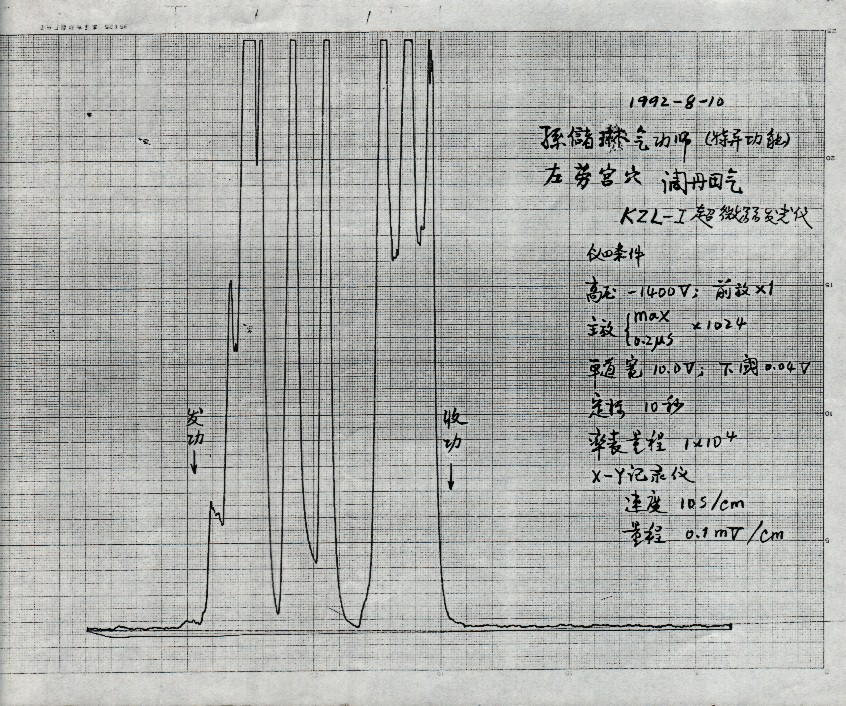 1992-8-10
孫儲琳气功师 (特异功能)
左劳宫穴 调丹田气
KZL-I超微弱发光仪
仪四条件
高压 -1400V; 前放×1
主放{max 0.2μS ×1024
单道宽 10.0V; 下阈 0.04V
定标 10秒
率表量程 1×10⁴
X-Y记录仪
速度 10S/cm
量程 0.1mV/cm
发功
收功
25
20
15
10
5